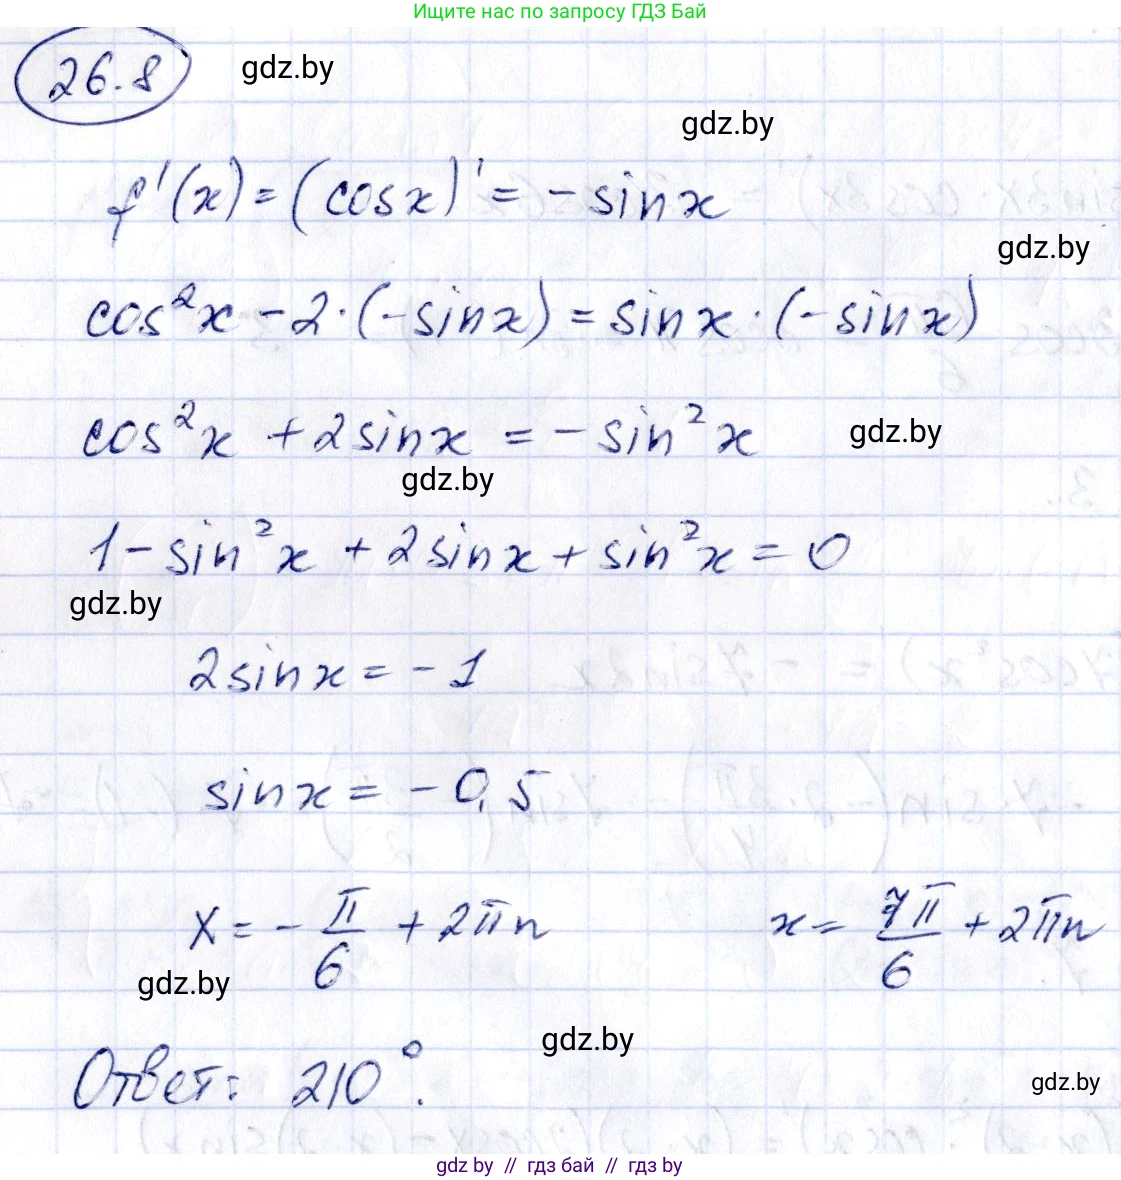 Ищите нас по запросу ГДЗ Бай
26.8 gdz.by
gdz.by
f'(x) = (cosx)' = - sinx
gdz.by
cos²x - 2·(-sinx) = sinx·(-sinx)
cos²x + 2sinx = - sin²x gdz.by
gdz.by
1 - sin²x + 2sinx + sin²x = 0
gdz.by
2sinx = - 1
sinx = - 0,5
x = - π/6 + 2πn x = 7π/6 + 2πn
gdz.by
gdz.by
Ответ: 210°.
gdz.by
gdz by // гдз бай // gdz by